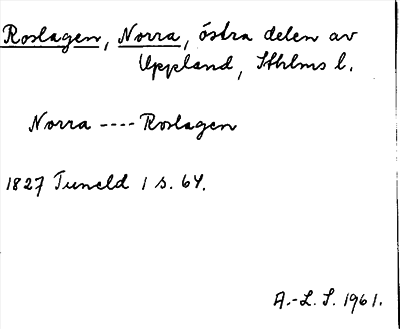 Roslagen, Norra, östra delen av
Uppland, Sthlms l.
Norra ---- Roslagen
1827 Tuneld 1 s. 64.
A.-L. S. 1961.